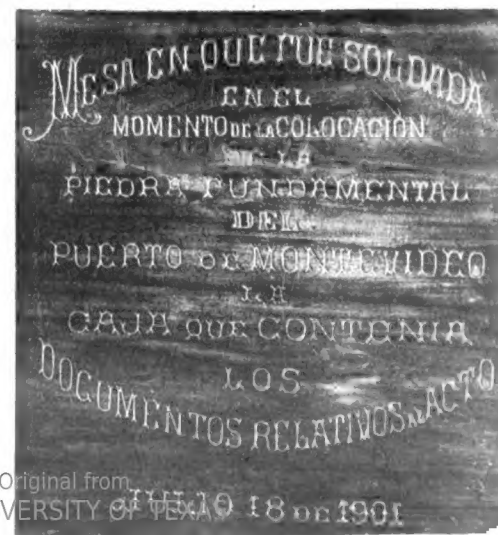 MESA EN QUE FUE SOLDADA
EN EL
MOMENTO DE LA COLOCACION
DE LA
PIEDRA FUNDAMENTAL
DEL
PUERTO DE MONTEVIDEO
LA
CAJA QUE CONTENIA
LOS
DOCUMENTOS RELATIVOS AL ACTO
JULIO 18 DE 1901
Original from
VERSITY OF TEXAS